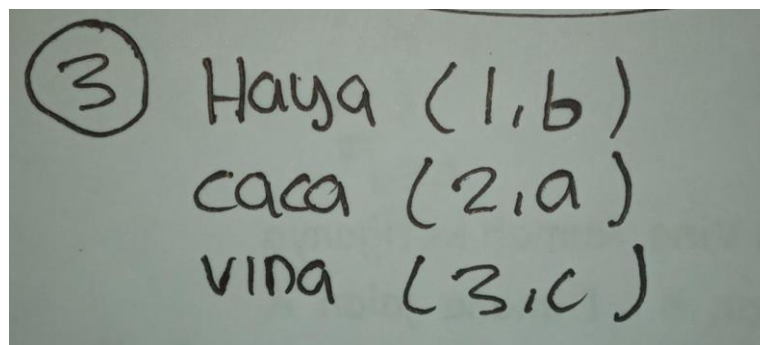 3 Haya (1,b)
caca (2,a)
vina (3,c)